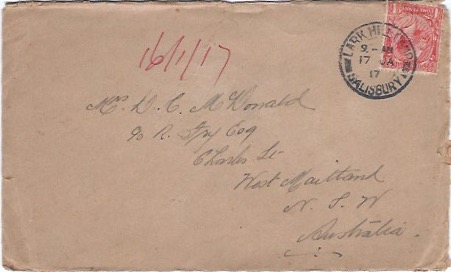 16/1/17
LARK HILL CAMP
9 - AM
17 JA
17
SALISBURY
Mrs D. C. McDonald
c/o R. Fry Esq
Charles St
West Maitland
N. S. W
Australia.